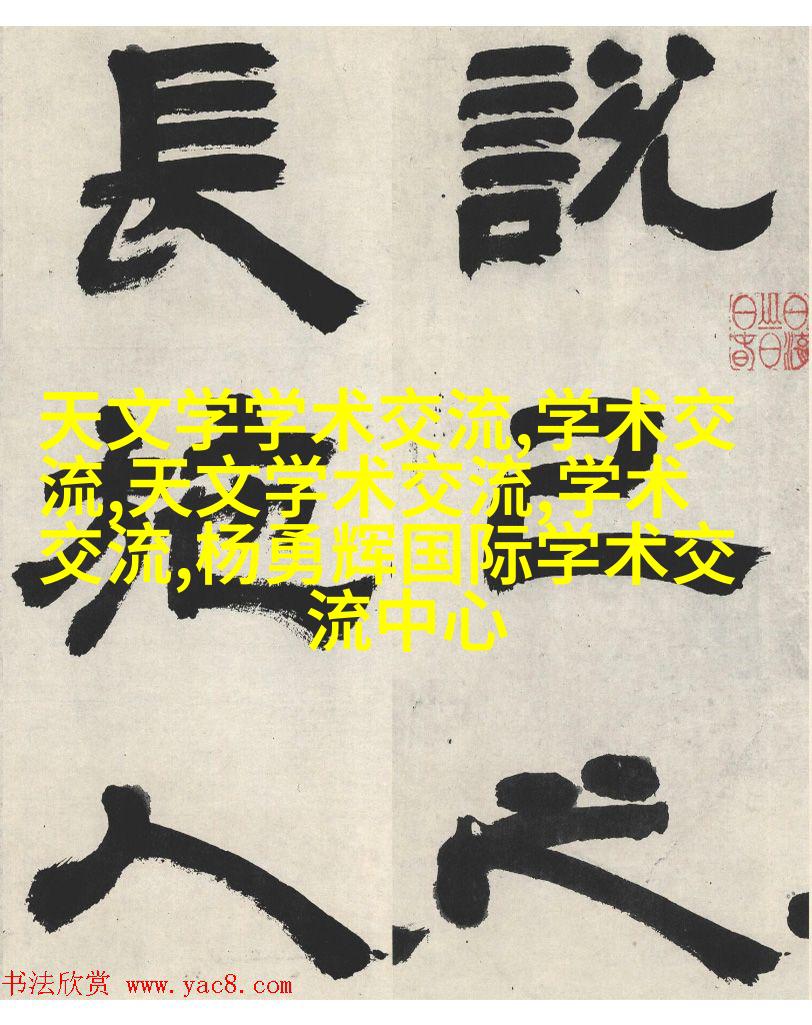 說己之
長施人
天文学学术交流,学术交
流,天文学术交流,学术
交流,杨勇辉国际学术交
流中心
书法欣赏 www.yac8.com